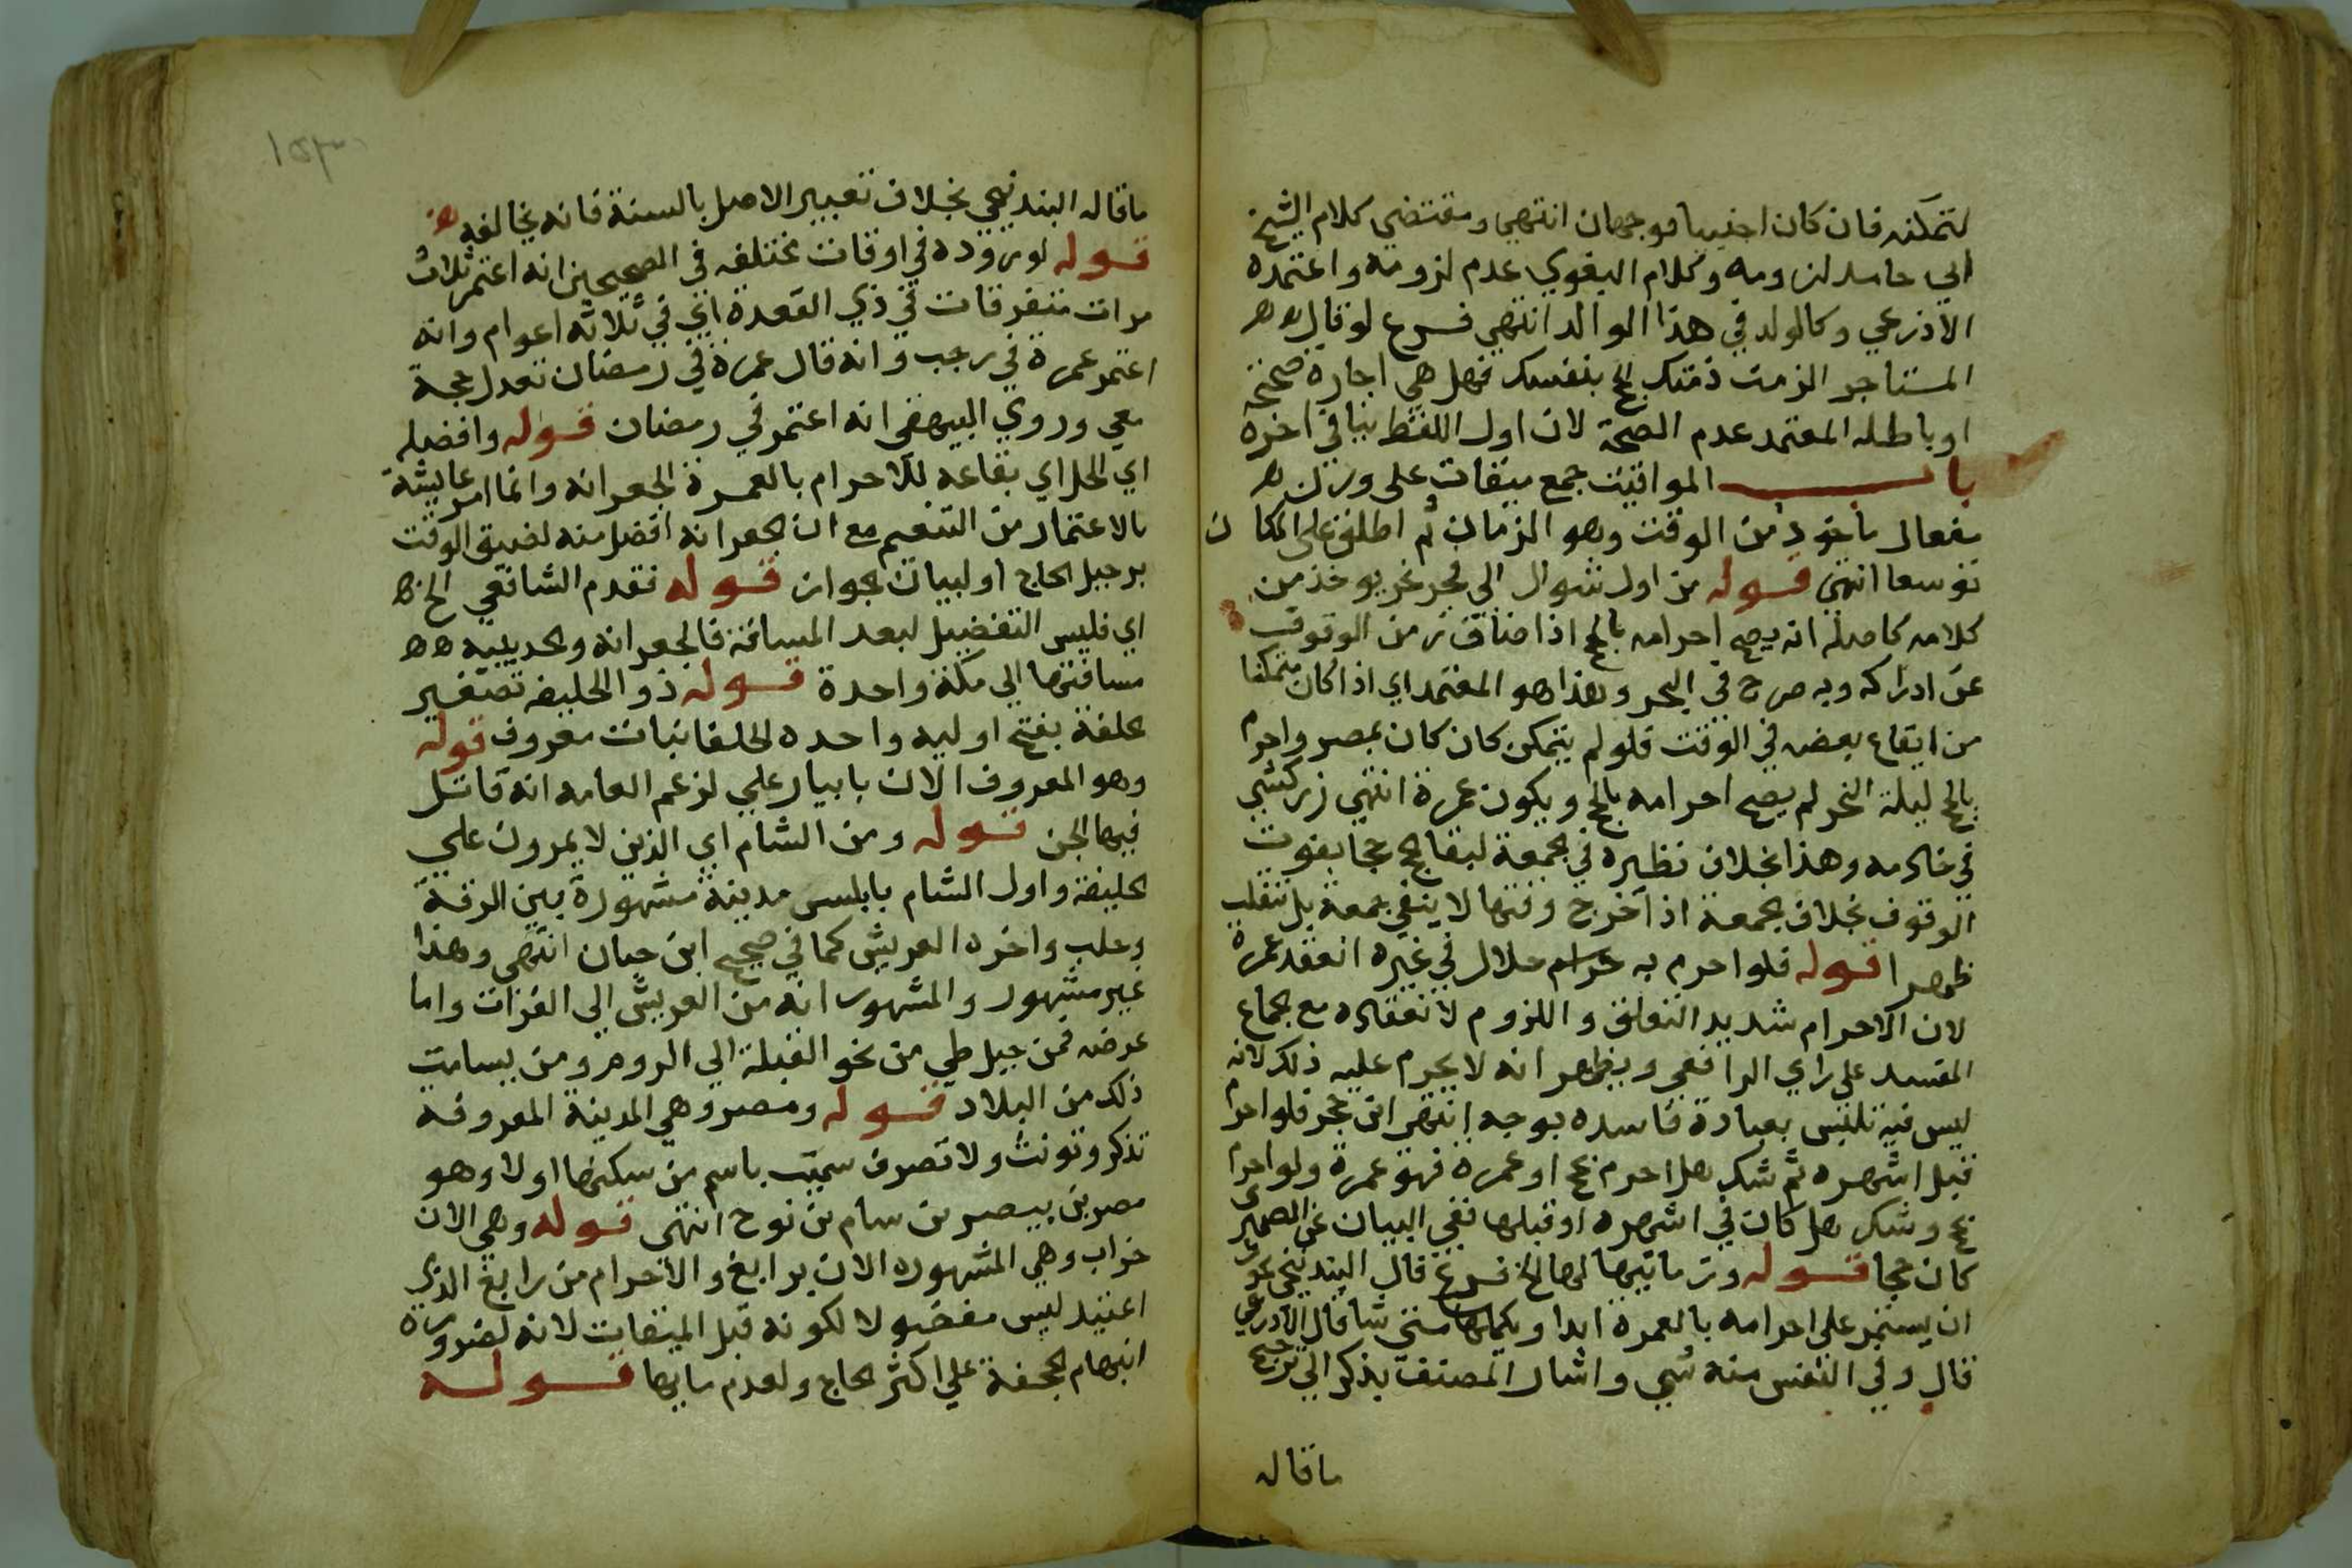 لتمكنه فان كان اجنبيا فوجهان انتهي ومقتضي كلام الشيخ
ابي حامد لزومه وكلام البغوي عدم لزومه واعتمده
الاذرعي وكالولد في هذا الوالد انتهي فرع لو قال
المستاجر الزمت ذمتك الحج بنفسك فهل هي اجارة صحيحة
او باطله المعتمد عدم الصحة لان اول اللفظ ينافي اخره
باب المواقيت جمع ميقات علي وزن
مفعال ماخوذ من الوقت وهو الزمان ثم اطلق علي المكان
توسعا انتهى قوله من اول شوال الي فجر نحر يوخذ من
كلامه كاصله انه يصح احرامه بالحج اذا ضاق زمن الوقوف
عن ادراكه وبه صرح في البحر وهذا هو المعتمد اي اذا كان متمكنا
من ايقاع بعضه في الوقت فلو لم يتمكن كان كان بمصر واحرم
بالحج ليلة النحر لم يصح احرامه بالحج ويكون عمرة انتهي زركشي
في خادمه وهذا بخلاف نظيره في الجمعة لبقا الحج حجا بفوت
الوقوف بخلاف الجمعة اذا خرج وقتها لا يبقي جمعة بل تنقلب
ظهرا قوله فلو احرم به حلال في غيره انعقد عمرة
لان الاحرام شديد التعلق واللزوم لانعقاده مع الجماع
المفسد علي راي الرافعي ويظهر انه لا يحرم عليه ذلك لانه
ليس فيه تلبس بعبادة فاسده بوجه انتهى ابن حجر فلو احرم
قبل اشهره ثم شك هل احرم بحج او عمره فهو عمرة ولو احرم
بحج وشك هل كان في اشهره او قبلها ففي البيان عن الصيمري
كان حجا قوله وزمانيها لها الخ فرع قال البندنيجي يجوز
ان يستمر علي احرامه بالعمرة ابدا ويكملها متي شا قال الاذرعي
قال وفي النفس منه شي واشار المصنف بذكر الي ترجيح
ما قاله
ما قاله البندنيجي بخلاف تعبير الاصل بالسنة فانه يخالفه
قوله لوروده في اوقات مختلفه في الصحيحين انه اعتمر ثلاث
مرات متفرقات في ذي القعدة اي في ثلاثه اعوام وانه
اعتمر عمرة في رجب وانه قال عمرة في رمضان تعدل حجة
معي وروي البيهقي انه اعتمر في رمضان قوله وافضله
اي الحل اي بقاعه للاحرام بالعمرة الجعرانه وانما امر عايشة
بالاعتمار من التنعيم مع ان الجعرانه افضل منه لضيق الوقت
برحيل الحاج او لبيان الجواز قوله فقدم الشافعي الخ
اي فليس التفضيل لبعد المسافة فالجعرانه والحديبيه
مسافتها الي مكة واحدة قوله ذو الحليفه تصغير
الحلفة بفتح اوليه واحده الحلفا نبات معروف قوله
وهو المعروف الان بابيار علي لزعم العامه انه قاتل
فيها الجن قوله ومن الشام اي الذين لا يمرون علي
الحليفة واول الشام بابلس مدينة مشهورة بين الرقة
وحلب واخره العريش كما في صحيح ابن حبان انتهى وهذا
غير مشهور والمشهور انه من العريش الي الفرات واما
عرضه فمن جبل طي من نحو القبلة الي الروم ومن يسامت
ذلك من البلاد قوله ومصر وهي المدينة المعروفة
تذكر وتونث ولا تصرف سميت باسم من سكنها اولا وهو
مصر بن بيصر بن سام بن نوح انتهى قوله وهي الان
خراب وهي المشهوره الان برابغ والاحرام من رابغ الذي
اعتيد ليس مفضولا لكونه قبل الميقات لانه لضرورة
انبهام الجحفة علي اكثر الحاج ولعدم مايها قوله